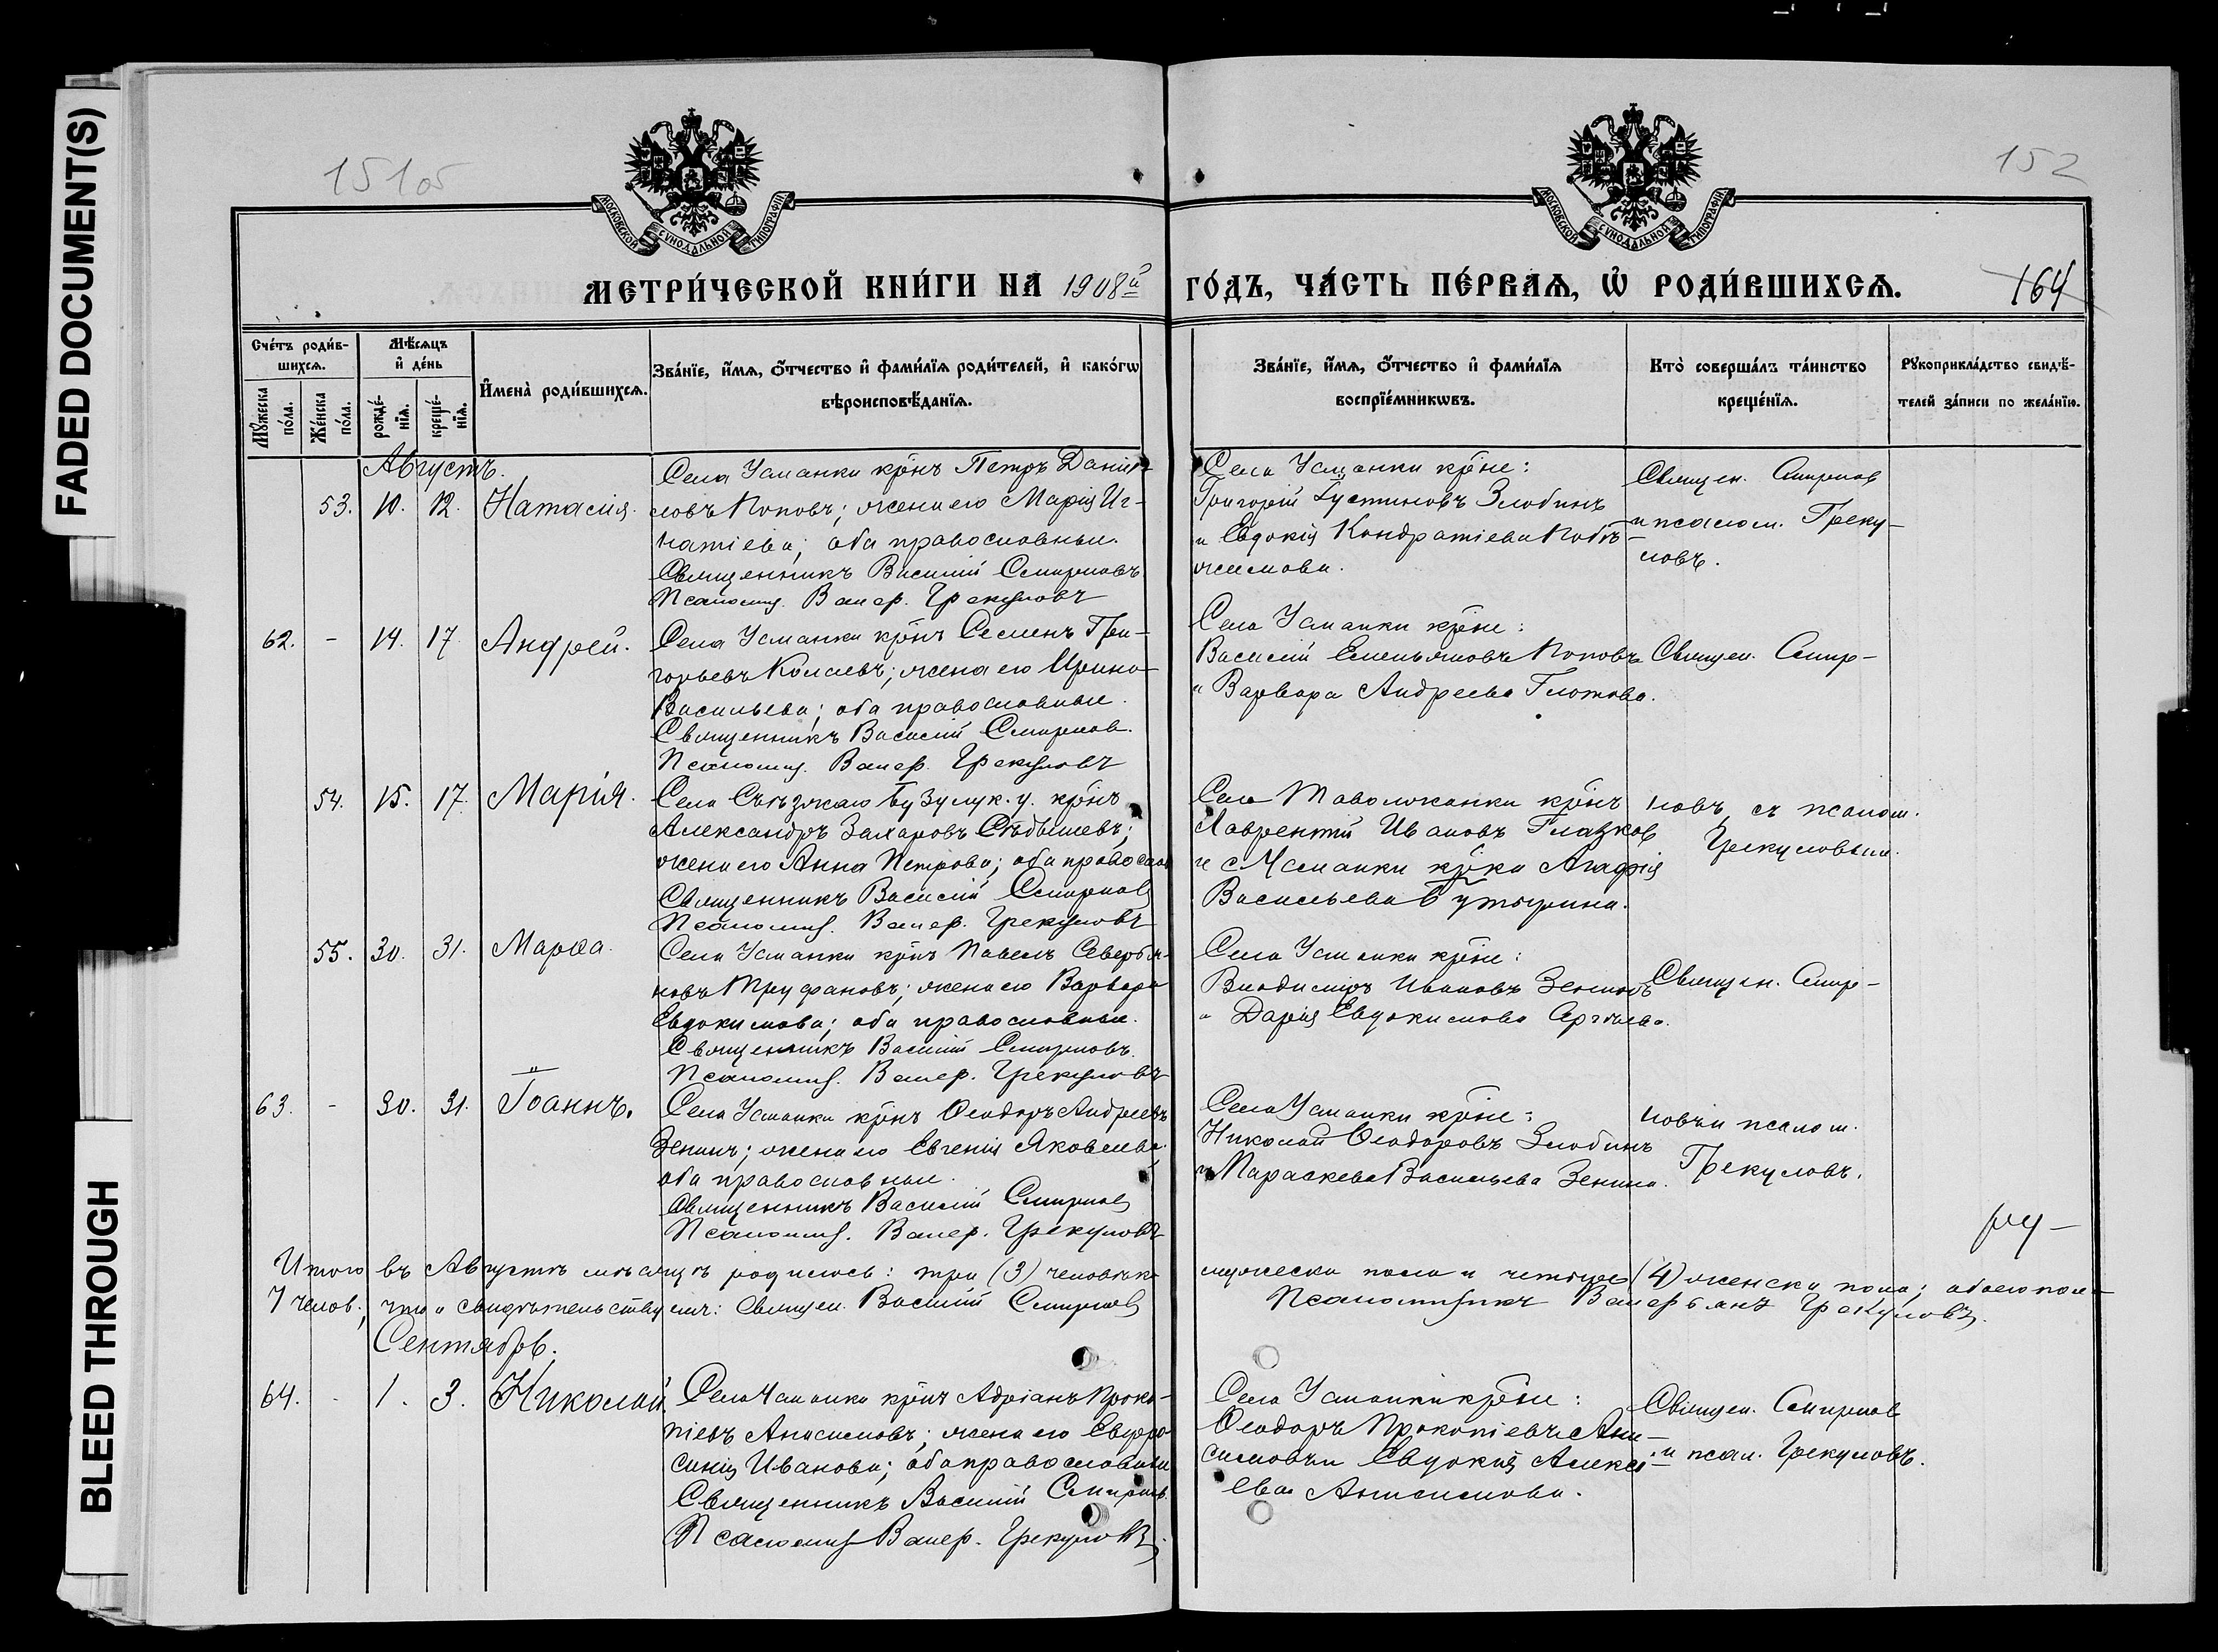 FADED DOCUMENT(S)
BLEED THROUGH
151об
152
МОСКОВСКОЙ СѴНОДАЛЬНОЙ ТИПОГРАФІИ
МОСКОВСКОЙ СѴНОДАЛЬНОЙ ТИПОГРАФІИ
МЕТРИ́ЧЕСКОЙ КНИ́ГИ НА 1908й ГО́ДЪ, ЧА́СТЬ ПЕ́РВАѦ, Ѡ҆ РОДИ́ВШИХСѦ.
164
Сче́тъ роди́вшихсѧ.
Мꙋ́жеска по́ла.
Же́нска по́ла.
Мѣ́сяцъ и҆ де́нь
рожде́нїѧ.
креще́нїѧ.
И҆мена̀ роди́вшихсѧ.
Зва́нїе, и҆́мѧ, ѻ҆́тчество и҆ фами́лїѧ роди́телей, и҆ како́гѡ
вѣроисповѣ́данїѧ.
Зва́нїе, и҆́мѧ, ѻ҆́тчество и҆ фами́лїѧ
воспрїе́мникѡвъ.
Кто̀ соверша́лъ та́инство
креще́нїѧ.
Рꙋкоприкла́дство свидѣ́-
телей за́писи по жела́нїю.
Августъ.
53. 10. 12. Наталія.
Села Усманки крнъ Петръ Даніи-
ловъ Поповъ; жена его Марія Иг-
натіева; оба православные.
Священникъ Василій Смирновъ
Псаломщ. Валер. Грекуловъ
Села Усманки крне:
Григорій Іустиновъ Злобинъ
и Евдокія Кондратіева
Священ. Смирнов
и псалом. Греку-
ловъ.
62. - 14. 17. Андрей.
Села Усманки крнъ Семенъ Гри-
горьевъ; жена его Ирина
Васильева; оба православные.
Священникъ Василій Смирнов.
Псаломщ. Валер. Грекуловъ
Села Усманки крне:
Василій Емельяновъ Поповъ
и Варвара Андреева Глотова.
Священ. Смир-
54. 15. 17. Марія.
Села Съѣзжаго Бузулук. у. крнъ
Александръ Захаровъ;
жена его Анна Петрова; оба правосла
Священникъ Василій Смирнов
Псаломщ. Валер. Грекуловъ
Села Таволжанки крнъ
Лаврентій Ивановъ Глазков
и с Усманки крка Агафія
Васильева Бутырина.
новъ съ псалом.
Грекуловым.
55. 30. 31. Марѳа.
Села Усманки крнъ Павелъ Северья-
новъ Труфановъ; жена его Варвара
Евдокимова; оба православные.
Священникъ Василій Смирновъ.
Псаломщ. Валер. Грекуловъ
Села Усманки крне:
Владиміръ Ивановъ Зенинъ
и Дарія Евдокимова
Священ. Смир-
63. - 30. 31. Іоаннъ.
Села Усманки крнъ Ѳеодоръ Андреевъ
Зенинъ; жена его Евгенія Яковлева
оба православные.
Священникъ Василій Смирнов
Псаломщ. Валер. Грекуловъ
Села Усманки крне:
Николай Ѳеодоровъ Злобинъ
и Параскева Васильева Зенина.
новъ и псалом.
Грекуловъ.
Итого въ Августѣ мѣсяцѣ родилось: три (3) человѣка мужеска пола и четыре (4) женска пола; обоего пола
7 челов.; что и свидѣтельствуемъ: Священ. Василій Смирнов Псаломщикъ Валерьянъ Грекуловъ.
Сентябрь.
64. - 1. 3. Николай
Села Усманки крнъ Адріанъ Проко-
піевъ Анисимовъ; жена его Евфро-
синія Иванова; оба православные
Священникъ Василій Смирнов.
Псаломщ Валер. Грекуловъ.
Села Усманки крне:
Ѳеодоръ Прокопіевъ Ани-
симовъ и Евдокія Алексі-
ева Анисимова.
Священ. Смирнов
и псал. Грекуловъ.